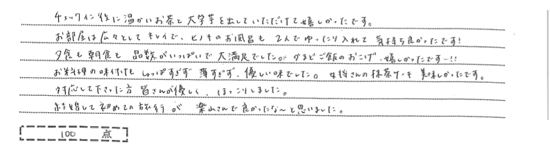 チェックイン時に温かいお茶と大学芋を出していただけて嬉しかったです。
お部屋は広々としてキレイで、ヒノキのお風呂も2人でゆったり入れて気持ち良かったです!
夕食も朝食も品数がいっぱいで大満足でした。かまどご飯のおこげ嬉しかったですー!!
お料理の味付けもしょっぱすぎず薄すぎず、優しい味でした。女将さんの抹茶ケーキ美味しかったです。
対応して下さった方皆さんが優しく、ほっこりしました。
結婚して初めての旅行が 葉山さんで良かったな〜と思いました。
100 点